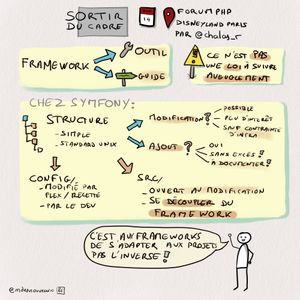 SORTIR
DU CADRE
FORUM PHP
DISNEYLAND PARIS
PAR @chalas_r
FRAMEWORK
OUTIL
GUIDE
CE N'EST PAS
UNE LOI À SUIVRE
AVEUGLEMENT
CHEZ SYMFONY:
STRUCTURE
- SIMPLE
- STANDARD UNIX
MODIFICATION?
POSSIBLE
PEU D'INTÉRÊT
SAUF CONTRAINTE
D'INFRA
AJOUT?
OUI
SANS EXCÈS!
À DOCUMENTER!
CONFIG/
- MODIFIÉ PAR
FLEX / RECETTE
- PAR LE DEV
SRC/
- OUVERT AU MODIFICATION
- SE DÉCOUPLER DU
FRAMEWORK
C'EST AUX FRAMEWORKS
DE S'ADAPTER AUX PROJETS
PAS L'INVERSE!